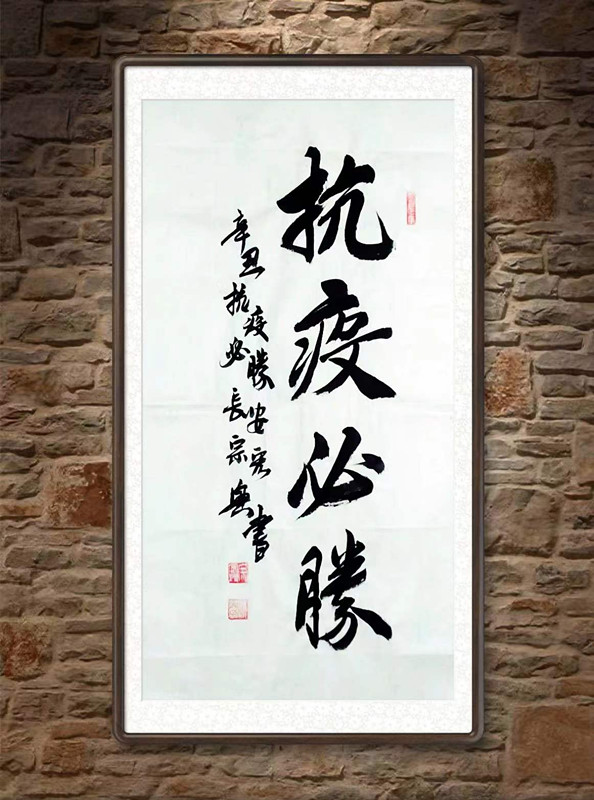 抗疫必勝
辛丑抗疫必勝長安宗書